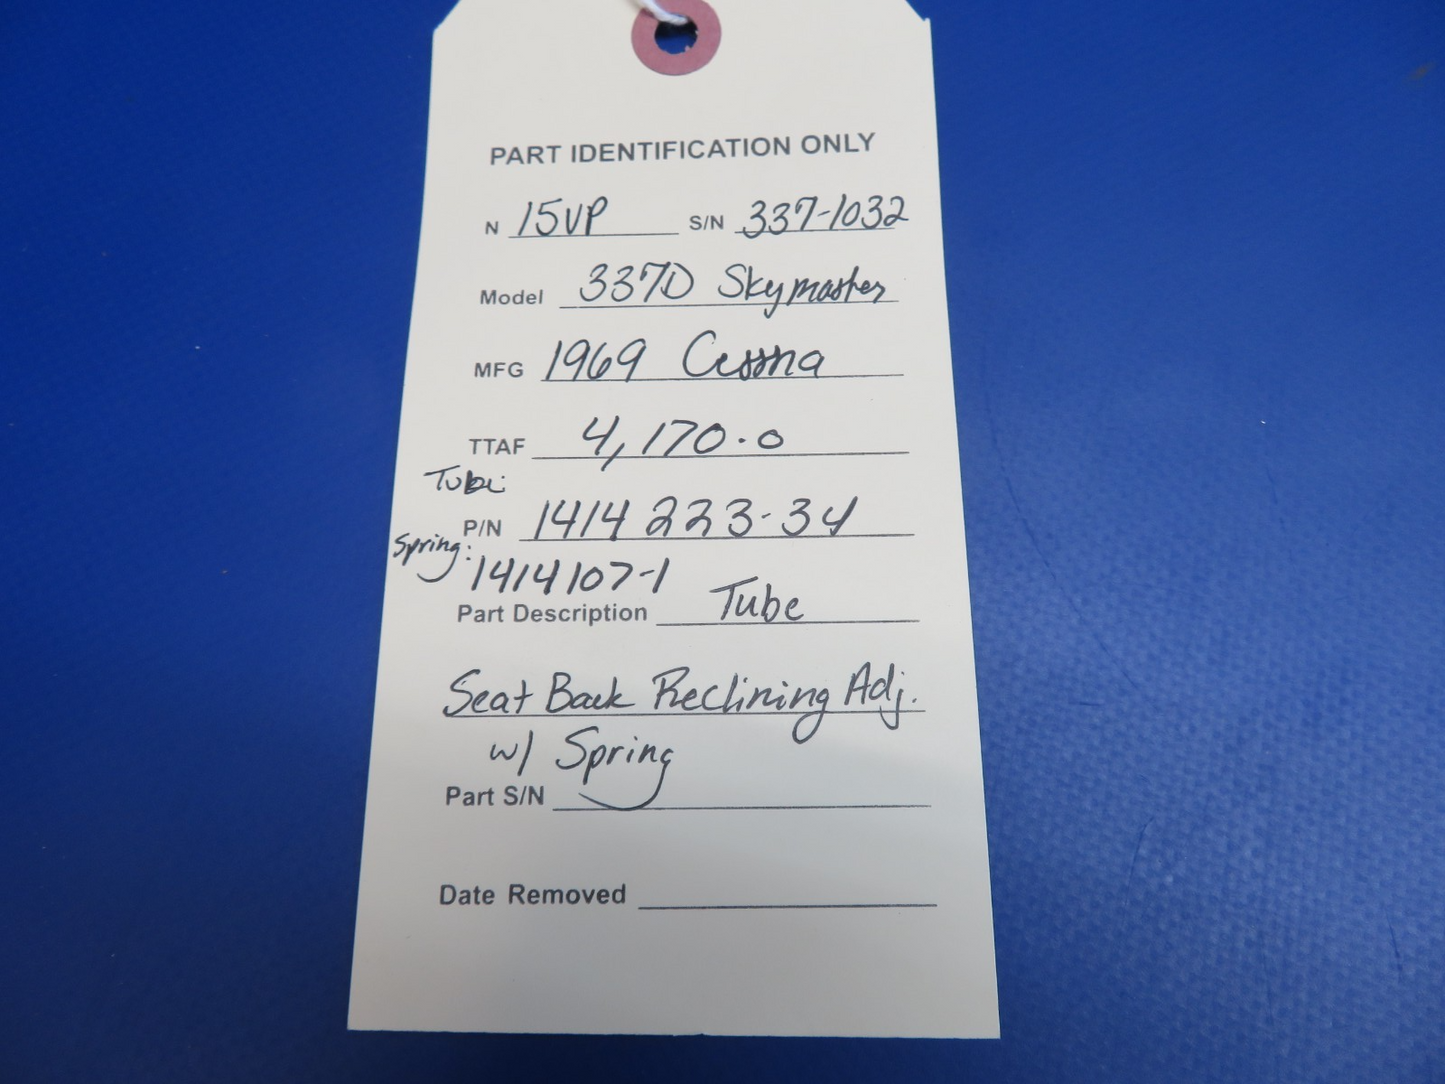 PART IDENTIFICATION ONLY
N 15VP S/N 337-1032
Model 337D Skymaster
MFG 1969 Cessna
TTAF 4,170.0
Tube:
P/N 1414223-34
Spring: 1414107-1
Part Description Tube
Seat Back Reclining Adj.
w/ Spring
Part S/N
Date Removed